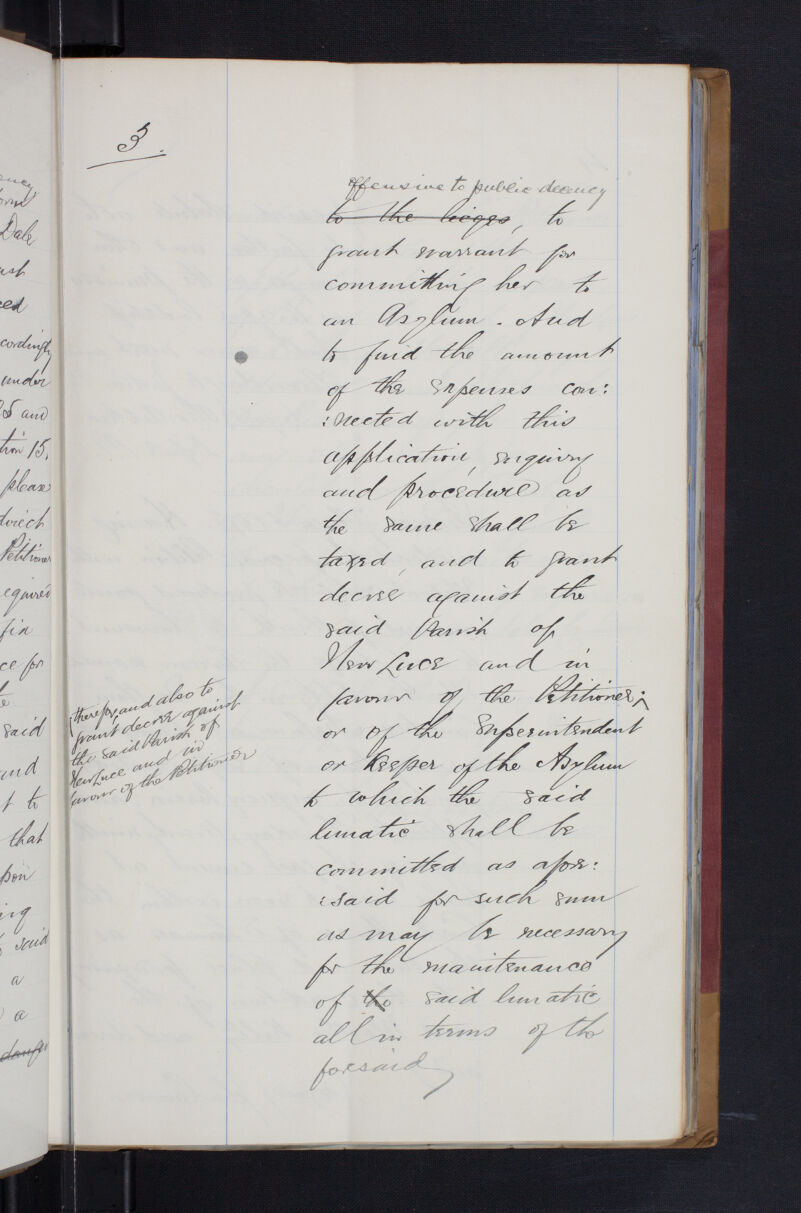 3.
offensive to public decency
to the lieges, to
grant warrant for
committing her to
an Asylum. And
to find the amount
of the expenses con:
:nected with this
application, enquiry
and procedure as
the same shall be
taxed, and to grant
decree against the
said Parish of
New Luce and in
favour of the Petitioner;
therefor, and also to
grant decree against
the said Parish of
New Luce and in
favour of the Petitioner
or of the Superintendent
or Keeper of the Asylum
to which the said
lunatic shall be
committed as afore:
:said for such sum
as may be necessary
for the maintenance
of the said lunatic
all in terms of the
foresaid
Dale
cordingly
under
and
15,
please
direct
Petitioner
said
that
said
a
a